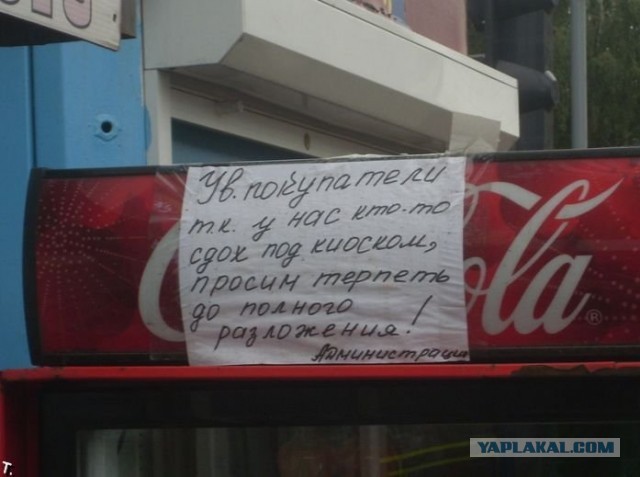 Ув. покупатели
т.к. у нас кто-то
сдох под киоском,
просим терпеть
до полного
разложения!
Администрация
Cola
YAPLAKAL.COM
т.